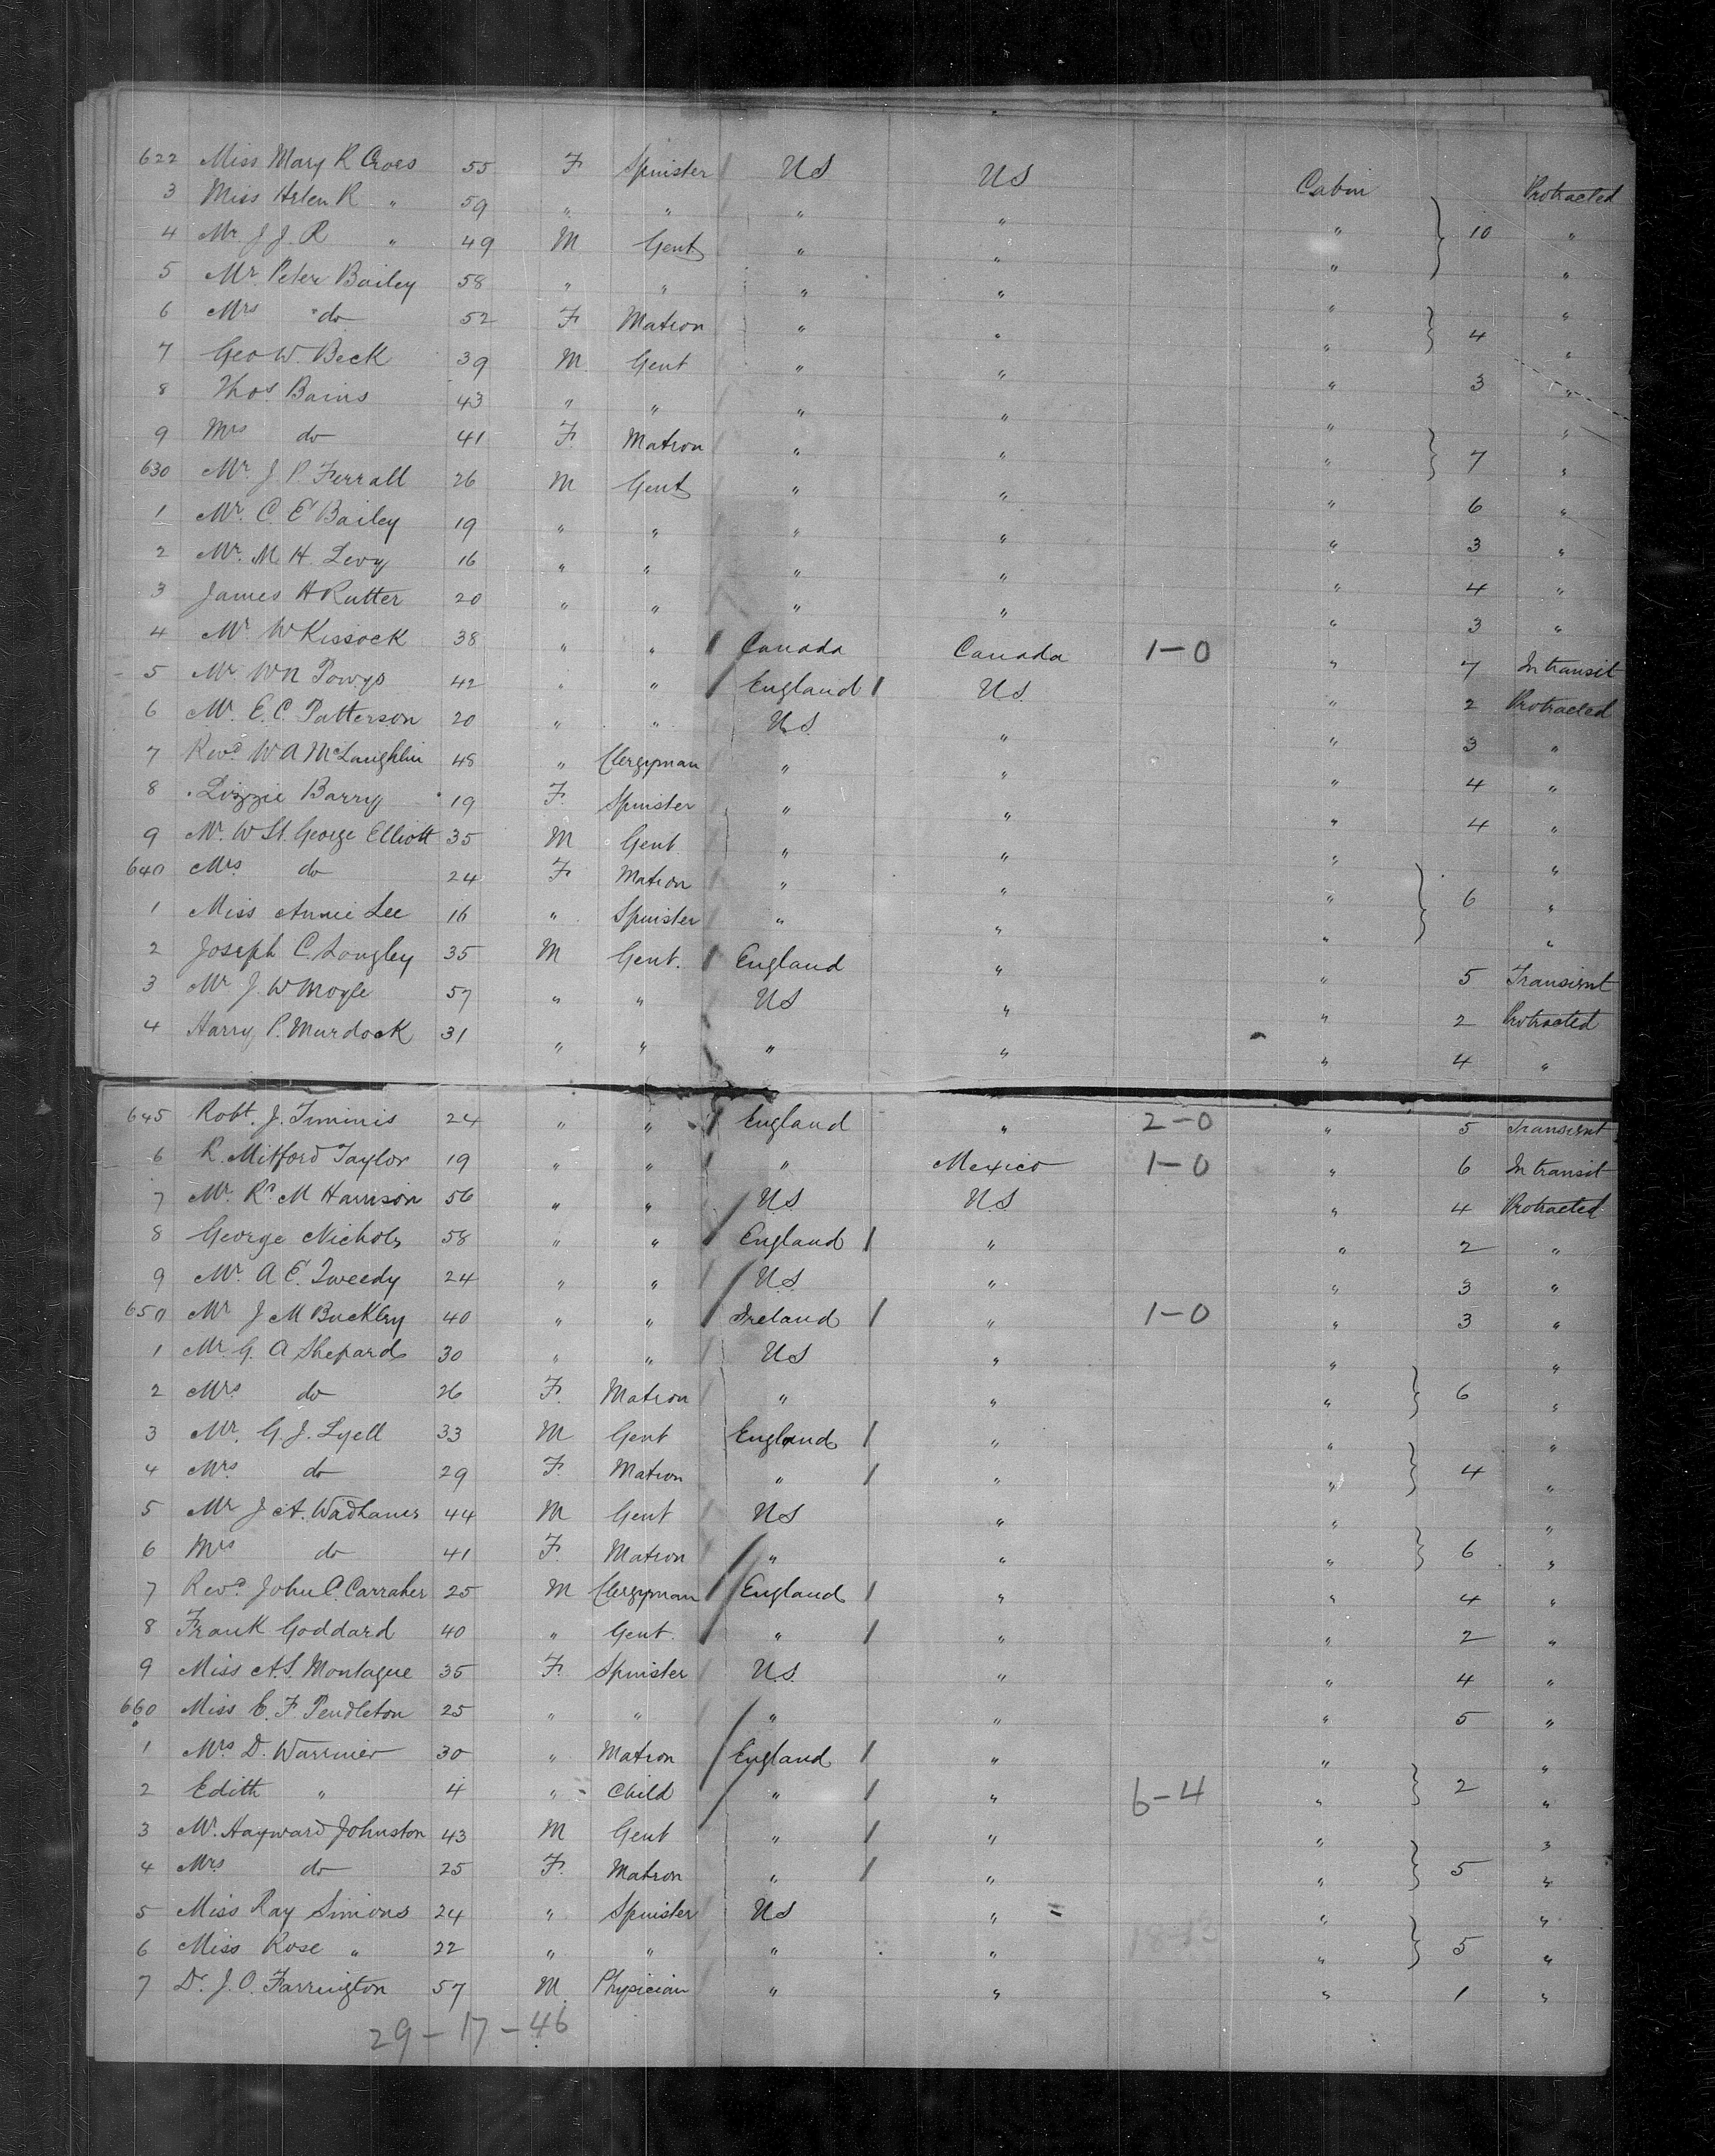 622 Miss Mary R Croes 55 F Spinister U S U S Cabin Protracted
3 Miss Helen R " 59 " " " " " "
4 Mr. J. J. R " 49 M Gent " " " 10 "
5 Mr. Peter Bailey 58 " " " " " "
6 Mrs do 52 F Matron " " " 4 "
7 Geo W. Beck 39 M Gent " " " 3 "
8 Thos. Bains 43 " " " " " "
9 Mrs do 41 F. Matron " " " 7 "
630 Mr. J. P. Ferrall 26 M Gent " " " 6 "
1 Mr. C. E Bailey 19 " " " " " 3 "
2 Mr. M. H. Levy 16 " " " " " 4 "
3 James H Rutter 20 " " " " " 3 "
4 Mr. W Kissock 38 " " Canada Canada 1-0 " 7 In transit
5 Mr. W N Powys 42 " " England U.S. " 2 Protracted
6 Mr. E. C. Patterson 20 " " U.S. " " 3 "
7 Revd. W A McLaughlin 48 " Clergyman " " " 4 "
8 Lizzie Barry 19 F. Spinister " " " 4 "
9 Mr. W St. George Elliott 35 M Gent " " " "
640 Mrs. do 24 F. Matron " " " 6 "
1 Miss Annie Lee 16 " Spinister " " " "
2 Joseph C. Longley 35 M Gent. England " " 5 Transient
3 Mr J. W Moyle 57 " " U S " " 2 Protracted
4 Harry P. Murdock 31 " " " " " 4 "
645 Robt. J. Timmis 24 " " England " 2-0 " 5 Transient
6 R. Mitford Taylor 19 " " " Mexico 1-0 " 6 In transit
7 Mr. Rd. M Harrison 56 " " U.S U.S " 4 Protracted
8 George Nichols 58 " " England " " 2 "
9 Mr. A E. Tweedy 24 " " U.S. " " 3 "
650 Mr J M Buckley 40 " " Ireland " 1-0 " 3 "
1 Mr. G. A Shepard 30 " " U S " " "
2 Mrs. do 26 F. Matron " " " 6 "
3 Mr. G. J. Lyell 33 M Gent England " " "
4 Mrs. do 29 F. Matron " " " 4 "
5 Mr J. A. Wadhams 44 M Gent U S " " "
6 Mrs do 41 F. Matron " " " 6 "
7 Revd. John C. Carraher 25 M Clergyman England " " 4 "
8 Frank Goddard 40 " Gent. " " " 2 "
9 Miss A. S. Montague 35 F. Spinister U.S. " " 4 "
660 Miss E. F. Pendleton 25 " " " " " 5 "
1 Mrs D. Warriner 30 " Matron England " " "
2 Edith " 4 " Child " " 6-4 " 2 "
3 Mr. Hayward Johnston 43 M Gent " " " "
4 Mrs do 25 F. Matron " " " 5 "
5 Miss Ray Simons 24 " Spinister U S " " "
6 Miss Rose " 22 " " " " " 5 "
7 Dr. J. O. Farrington 57 M. Physician " " " 1 "
29-17-46